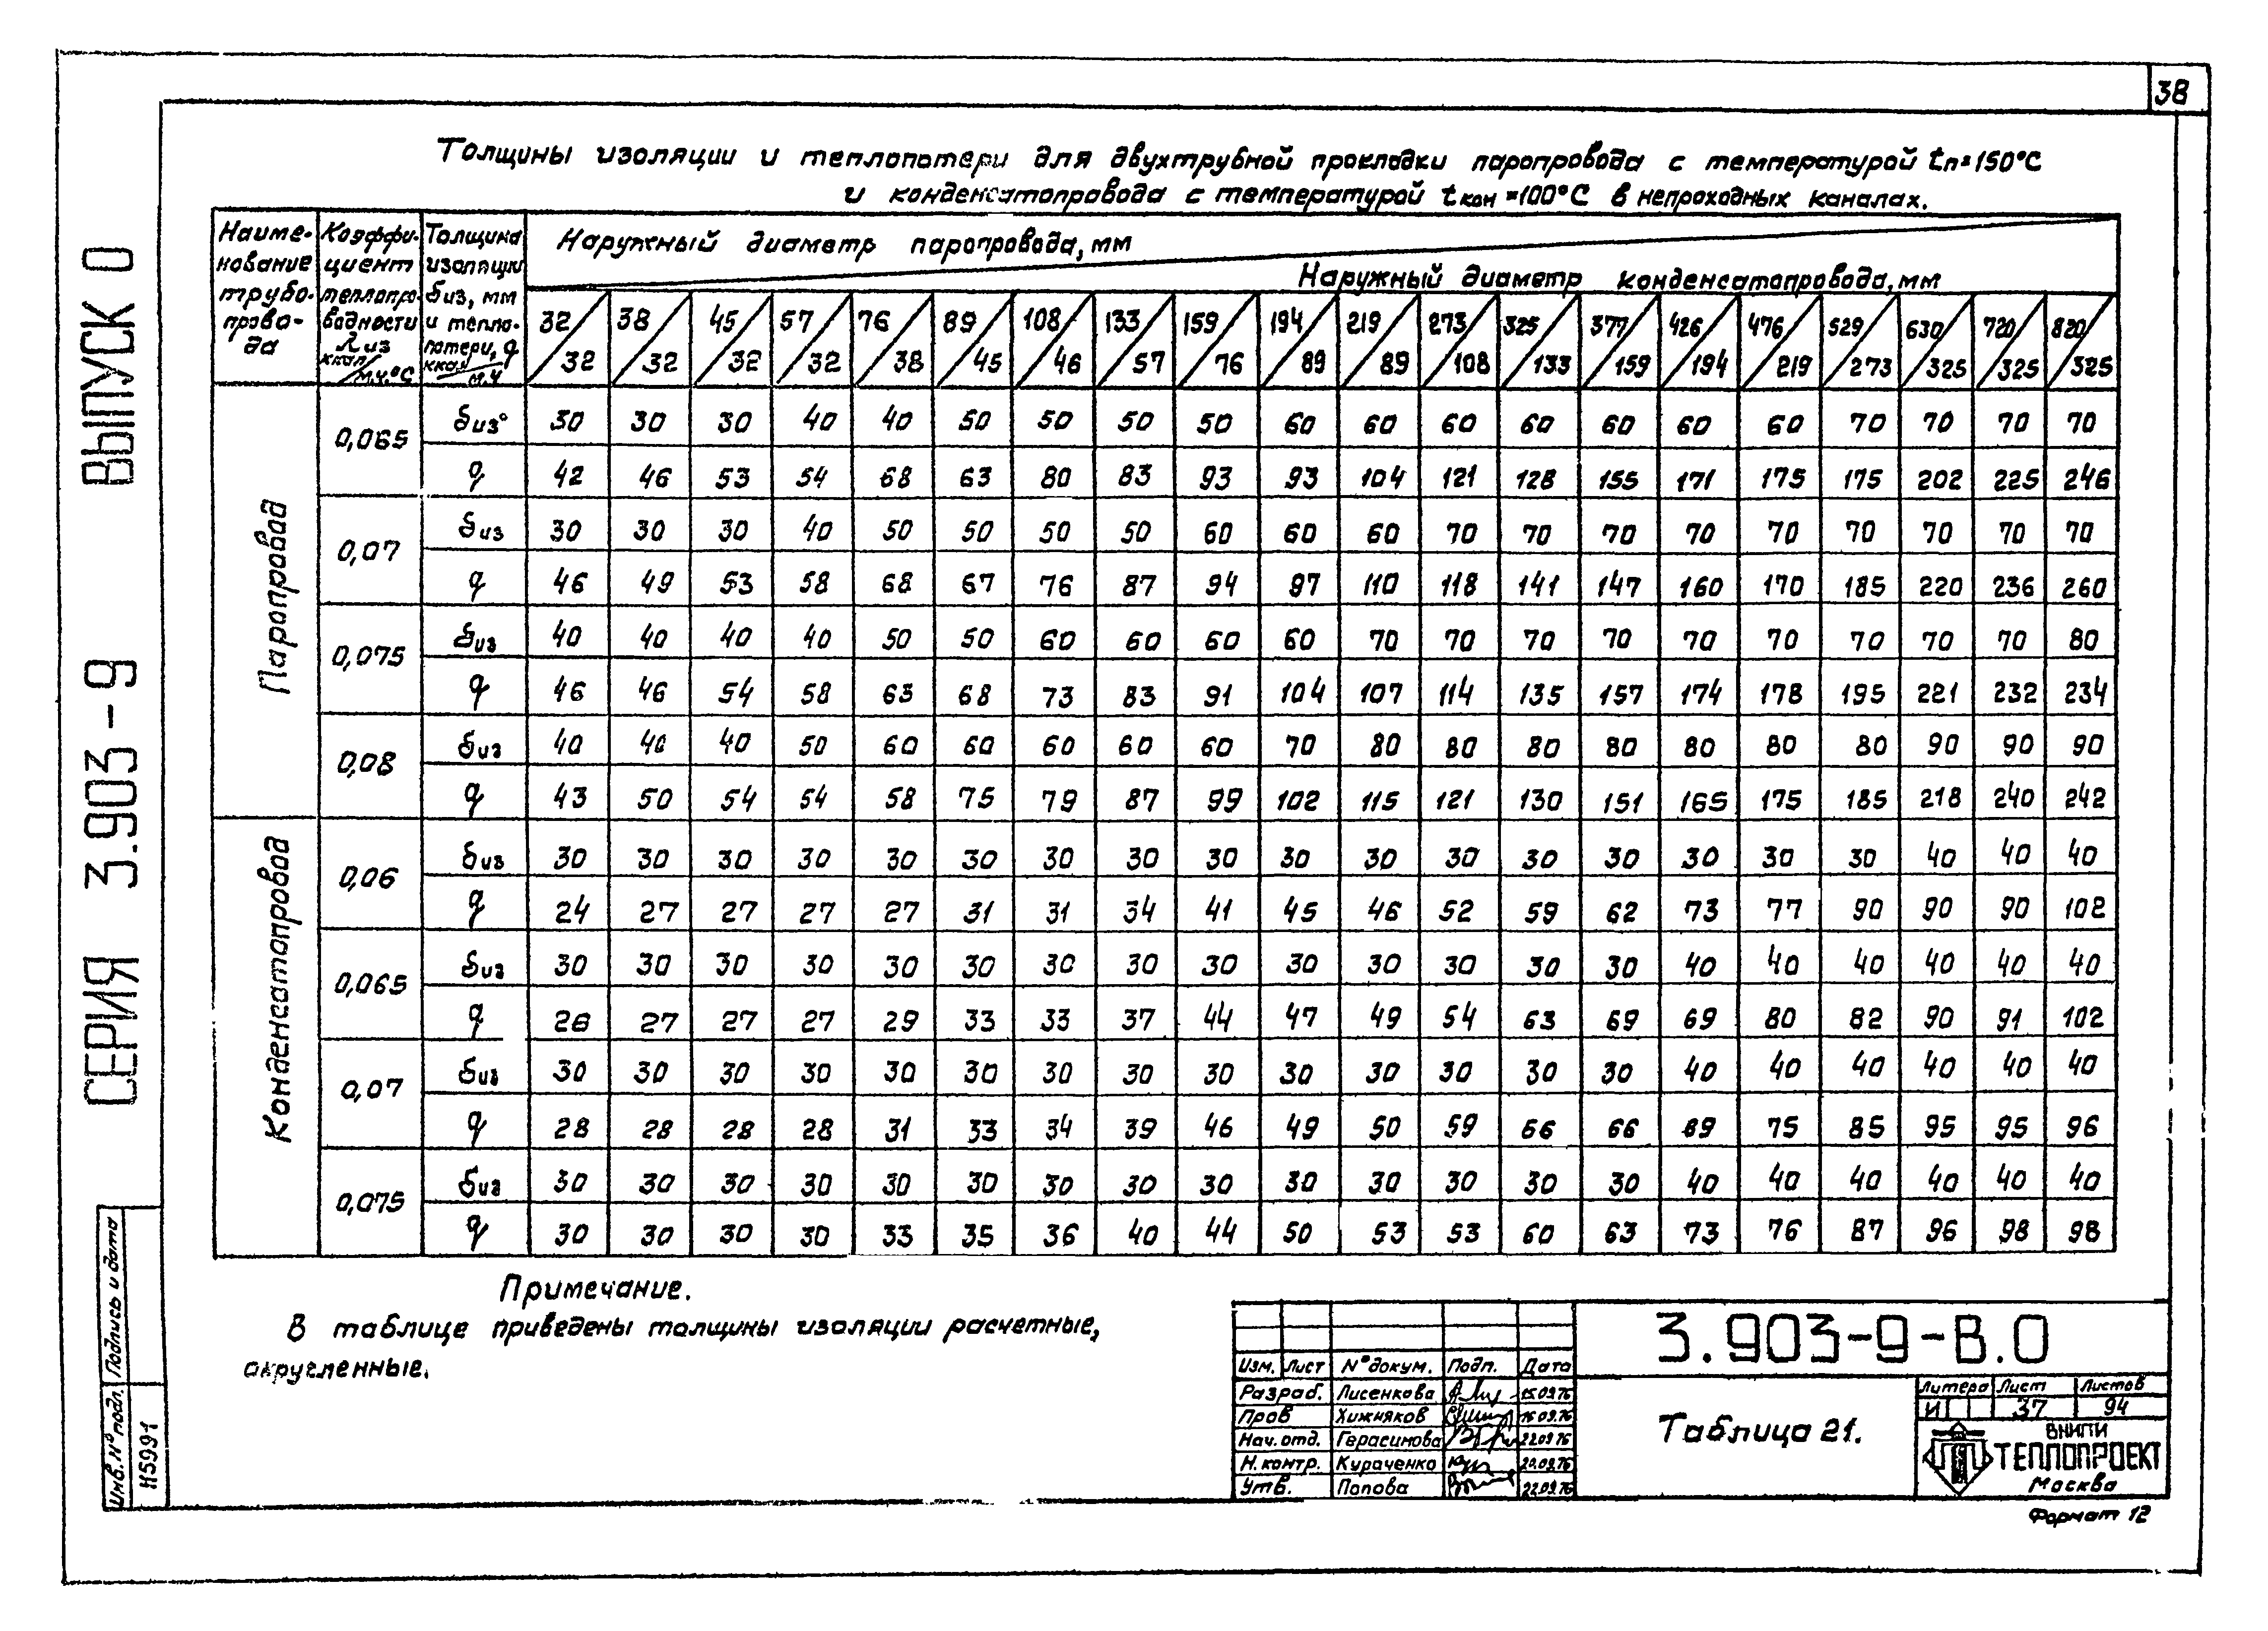 38
Толщины изоляции и теплопотери для двухтрубной прокладки паропровода с температурой tп=150°С
и конденсатопровода с температурой tкон=100°С в непроходных каналах.
Наиме-нование трубо-прово-да | Коэффи-циент теплопро-водности λиз ккал/м.ч.°С | Толщина изоляции δиз, мм и тепло-потери, q ккал/м.ч | Наружный диаметр паропровода, мм
Наружный диаметр конденсатопровода, мм
32/32 38/32 45/32 57/32 76/38 89/45 108/46 133/57 159/76 194/89 219/89 273/108 325/133 377/159 426/194 476/219 529/273 630/325 720/325 820/325
Паропровод
0,065 δиз 30 30 30 40 40 50 50 50 50 60 60 60 60 60 60 60 70 70 70 70
q 42 46 53 54 68 63 80 83 93 93 104 121 128 155 171 175 175 202 225 246
0,07 δиз 30 30 30 40 50 50 50 50 60 60 60 70 70 70 70 70 70 70 70 70
q 46 49 53 58 68 67 76 87 94 97 110 118 141 147 160 170 185 220 236 260
0,075 δиз 40 40 40 40 50 50 60 60 60 60 70 70 70 70 70 70 70 70 70 80
q 46 46 54 58 63 68 73 83 91 104 107 114 135 157 174 178 195 221 232 234
0,08 δиз 40 40 40 50 60 60 60 60 60 70 80 80 80 80 80 80 80 90 90 90
q 43 50 54 54 58 75 79 87 99 102 115 121 130 151 165 175 185 218 240 242
Конденсатопровод
0,06 δиз 30 30 30 30 30 30 30 30 30 30 30 30 30 30 30 30 30 40 40 40
q 24 27 27 27 27 31 31 34 41 45 46 52 59 62 73 77 90 90 90 102
0,065 δиз 30 30 30 30 30 30 30 30 30 30 30 30 30 30 40 40 40 40 40 40
q 26 27 27 27 29 33 33 37 44 47 49 54 63 69 69 80 82 90 91 102
0,07 δиз 30 30 30 30 30 30 30 30 30 30 30 30 30 30 40 40 40 40 40 40
q 28 28 28 28 31 33 34 39 46 49 50 59 66 66 69 75 85 95 95 96
0,075 δиз 30 30 30 30 30 30 30 30 30 30 30 30 30 30 40 40 40 40 40 40
q 30 30 30 30 33 35 36 40 44 50 53 53 60 63 73 76 87 96 98 98
Примечание.
В таблице приведены толщины изоляции расчетные,
округленные.
СЕРИЯ 3.903-9 ВЫПУСК 0
Подпись и дата
Инв.№ подл.
Н5991
Изм. Лист №докум. Подп. Дата
Разраб. Лисенкова 15.09.76
Пров Хижняков 16.09.76
Нач.отд. Герасимова 22.09.76
Н.контр. Кураченко 20.09.76
Утв. Попова 22.09.76
3.903-9-В.0
Таблица 21.
Литера Лист Листов
И 37 94
ВНИПИ
ТЕПЛОПРОЕКТ
Москва
Формат 12